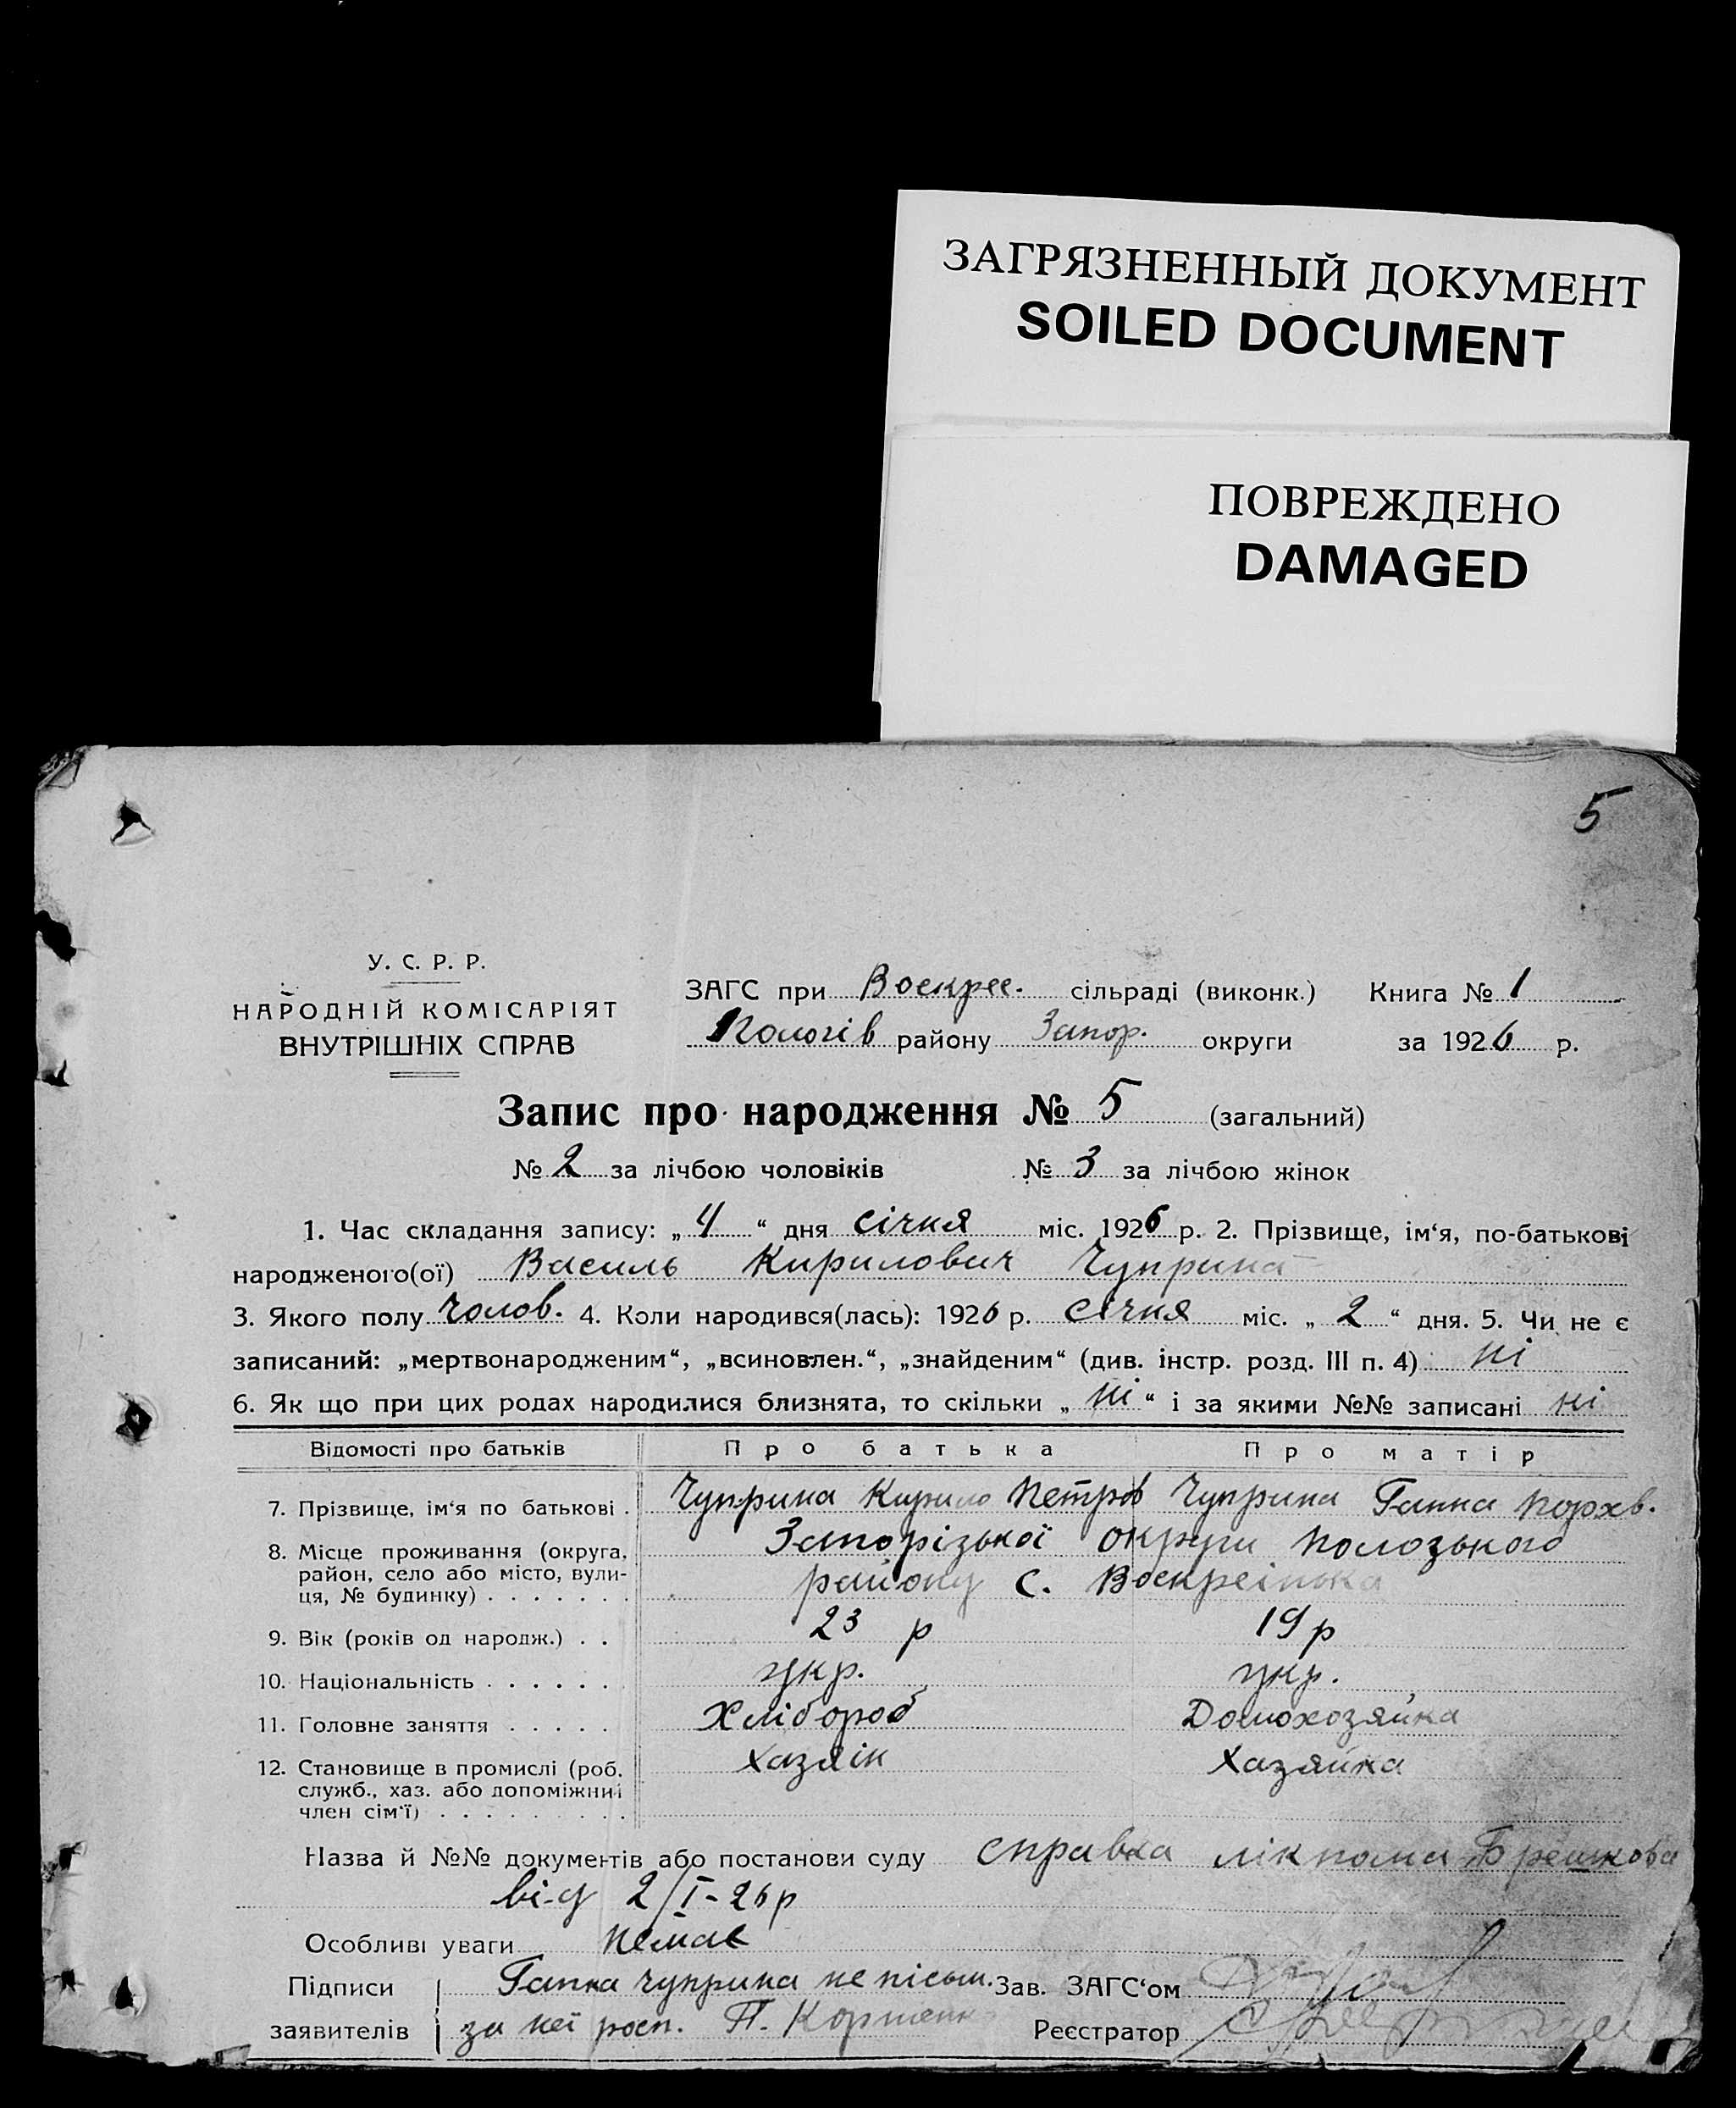 ЗАГРЯЗНЕННЫЙ ДОКУМЕНТ
SOILED DOCUMENT
ПОВРЕЖДЕНО
DAMAGED
5
У. С. Р. Р.
НАРОДНІЙ КОМІСАРІЯТ
ВНУТРІШНІХ СПРАВ
ЗАГС при Воскрес. сільраді (виконк.) Книга № 1
Пологів району Запор. округи за 1926 р.
Запис про народження № 5 (загальний)
№ 2 за лічбою чоловіків № 3 за лічбою жінок
1. Час складання запису: „4“ дня січня міс. 1926 р. 2. Прізвище, ім‘я, по-батькові
народженого(ої) Василь Кирилович Чуприна
3. Якого полу Чолов. 4. Коли народився(лась): 1926 р. січня міс. „2“ дня. 5. Чи не є
записаний: „мертвонародженим“, „всиновлен.“, „знайденим“ (див. інстр. розд. III п. 4) ні
6. Як що при цих родах народилися близнята, то скільки „ні“ і за якими №№ записані ні
Відомості про батьків Про батька Про матір
7. Прізвище, ім‘я по батькові . Чуприна Кирило Петров Чуприна Ганна Порхв.
8. Місце проживання (округа, Запорізької округи Полозького
район, село або місто, вули-
ця, № будинку) . . . . . . . району с. Воскресінка
9. Вік (років од народж.) . . 23 р 19 р
10. Національність . . . . . . укр. укр.
11. Головне заняття . . . . . Хлібороб Домохозяйка
12. Становище в промислі (роб. Хазяін Хазяйка
служб., хаз. або допоміжний
член сім‘ї) . . . . . . . .
Назва й №№ документів або постанови суду справка лікпома Брешкова
від 2/I-26 р
Особливі уваги немає
Підписи Ганна Чуприна не письм. Зав. ЗАГС‘ом
заявителів за неї росп. П. Реєстратор